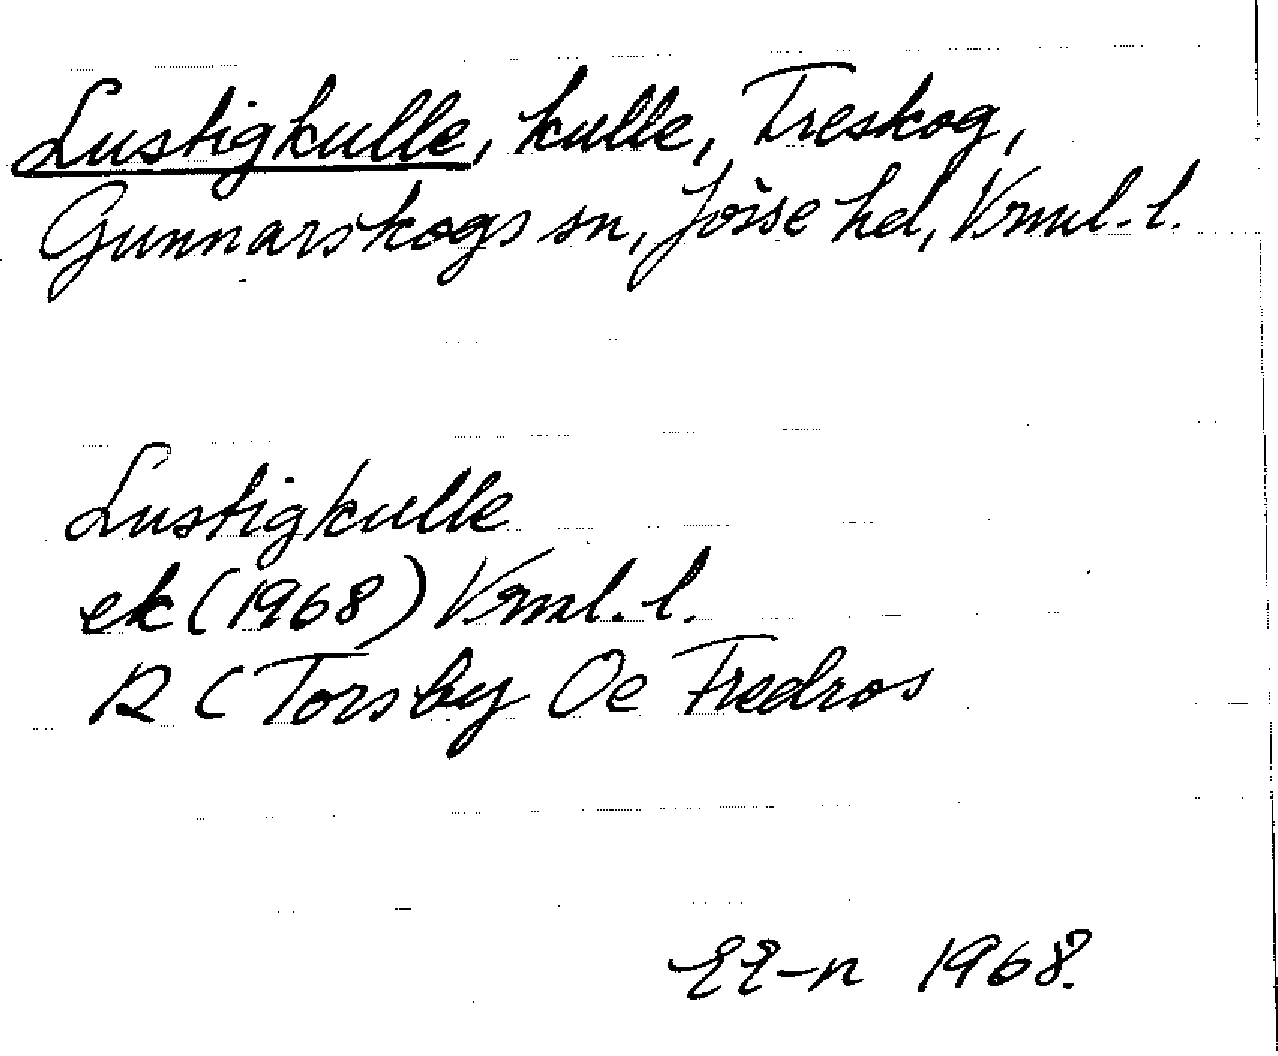 Lustigkulle, kulle, Treskog,
Gunnarskogs sn, Jösse hd, Vrml. l.
Lustigkulle
ek (1968) Vrml. l.
12 C Torsby Oe Fredros
EE-n 1968.